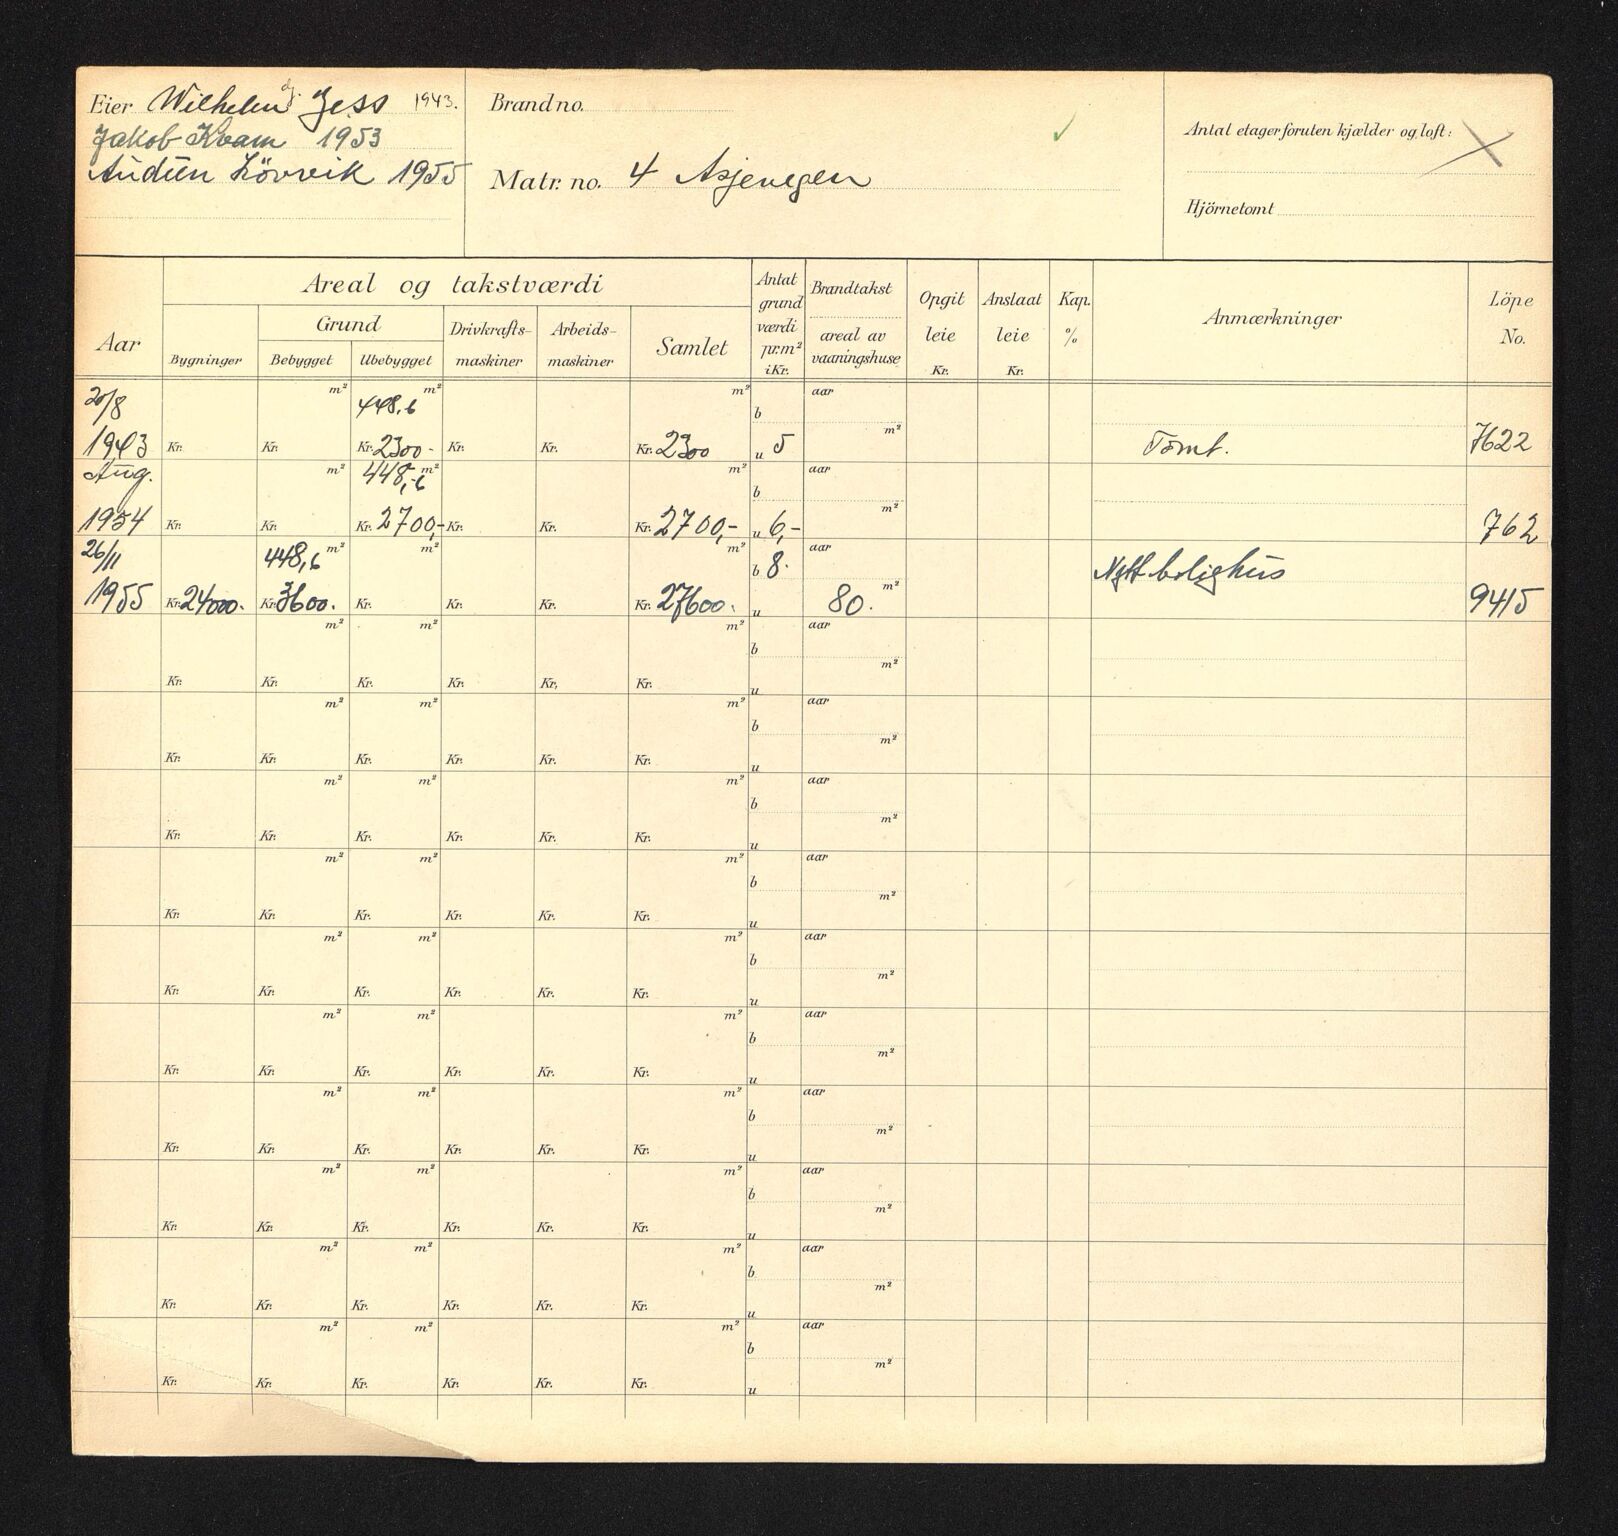 Eier Wilhelm dj. Jess 1943.
Jakob Kvam 1953
Audun Lövvik 1955
Brand no.
Matr. no. 4 Asjevegen
Antal etager foruten kjælder og loft:
Hjörnetomt
Aar
Areal og takstværdi
Bygninger
Grund
Bebygget Ubebygget
Drivkrafts-
maskiner
Arbeids-
maskiner
Samlet
Antat
grund
værdi
pr. m²
i Kr.
Brandtakst
areal av
vaaningshuse
Opgit
leie
Kr.
Anslaat
leie
Kr.
Kap.
%
Anmærkninger
Löpe
No.
20/8 m² 448,6 m² m² b aar
1943 Kr. Kr. Kr. 2300- Kr. Kr. Kr. 2300 u 5 m² Tomt. 7622
Aug. m² 448,6 m² m² b aar
1954 Kr. Kr. Kr. 2700,- Kr. Kr. Kr. 2700,- u 6,- m² 762
26/11 448,6 m² m² m² b 8. aar Nytt bolighus
1955 Kr. 24000. Kr. 3600. Kr. Kr. Kr. Kr. 27600. u 80. m² 9415
m² m² m² b aar
Kr. Kr. Kr. Kr. Kr. Kr. u m²
m² m² m² b aar
Kr. Kr. Kr. Kr. Kr. Kr. u m²
m² m² m² b aar
Kr. Kr. Kr. Kr. Kr. Kr. u m²
m² m² m² b aar
Kr. Kr. Kr. Kr. Kr. Kr. u m²
m² m² m² b aar
Kr. Kr. Kr. Kr. Kr. Kr. u m²
m² m² m² b aar
Kr. Kr. Kr. Kr. Kr. Kr. u m²
m² m² m² b aar
Kr. Kr. Kr. Kr. Kr. Kr. u m²
m² m² m² b aar
Kr. Kr. Kr. Kr. Kr. Kr. u m²
m² m² m² b aar
Kr. Kr. Kr. Kr. Kr. Kr. u m²
m² m² m² b aar
Kr. Kr. Kr. Kr. Kr. Kr. u m²